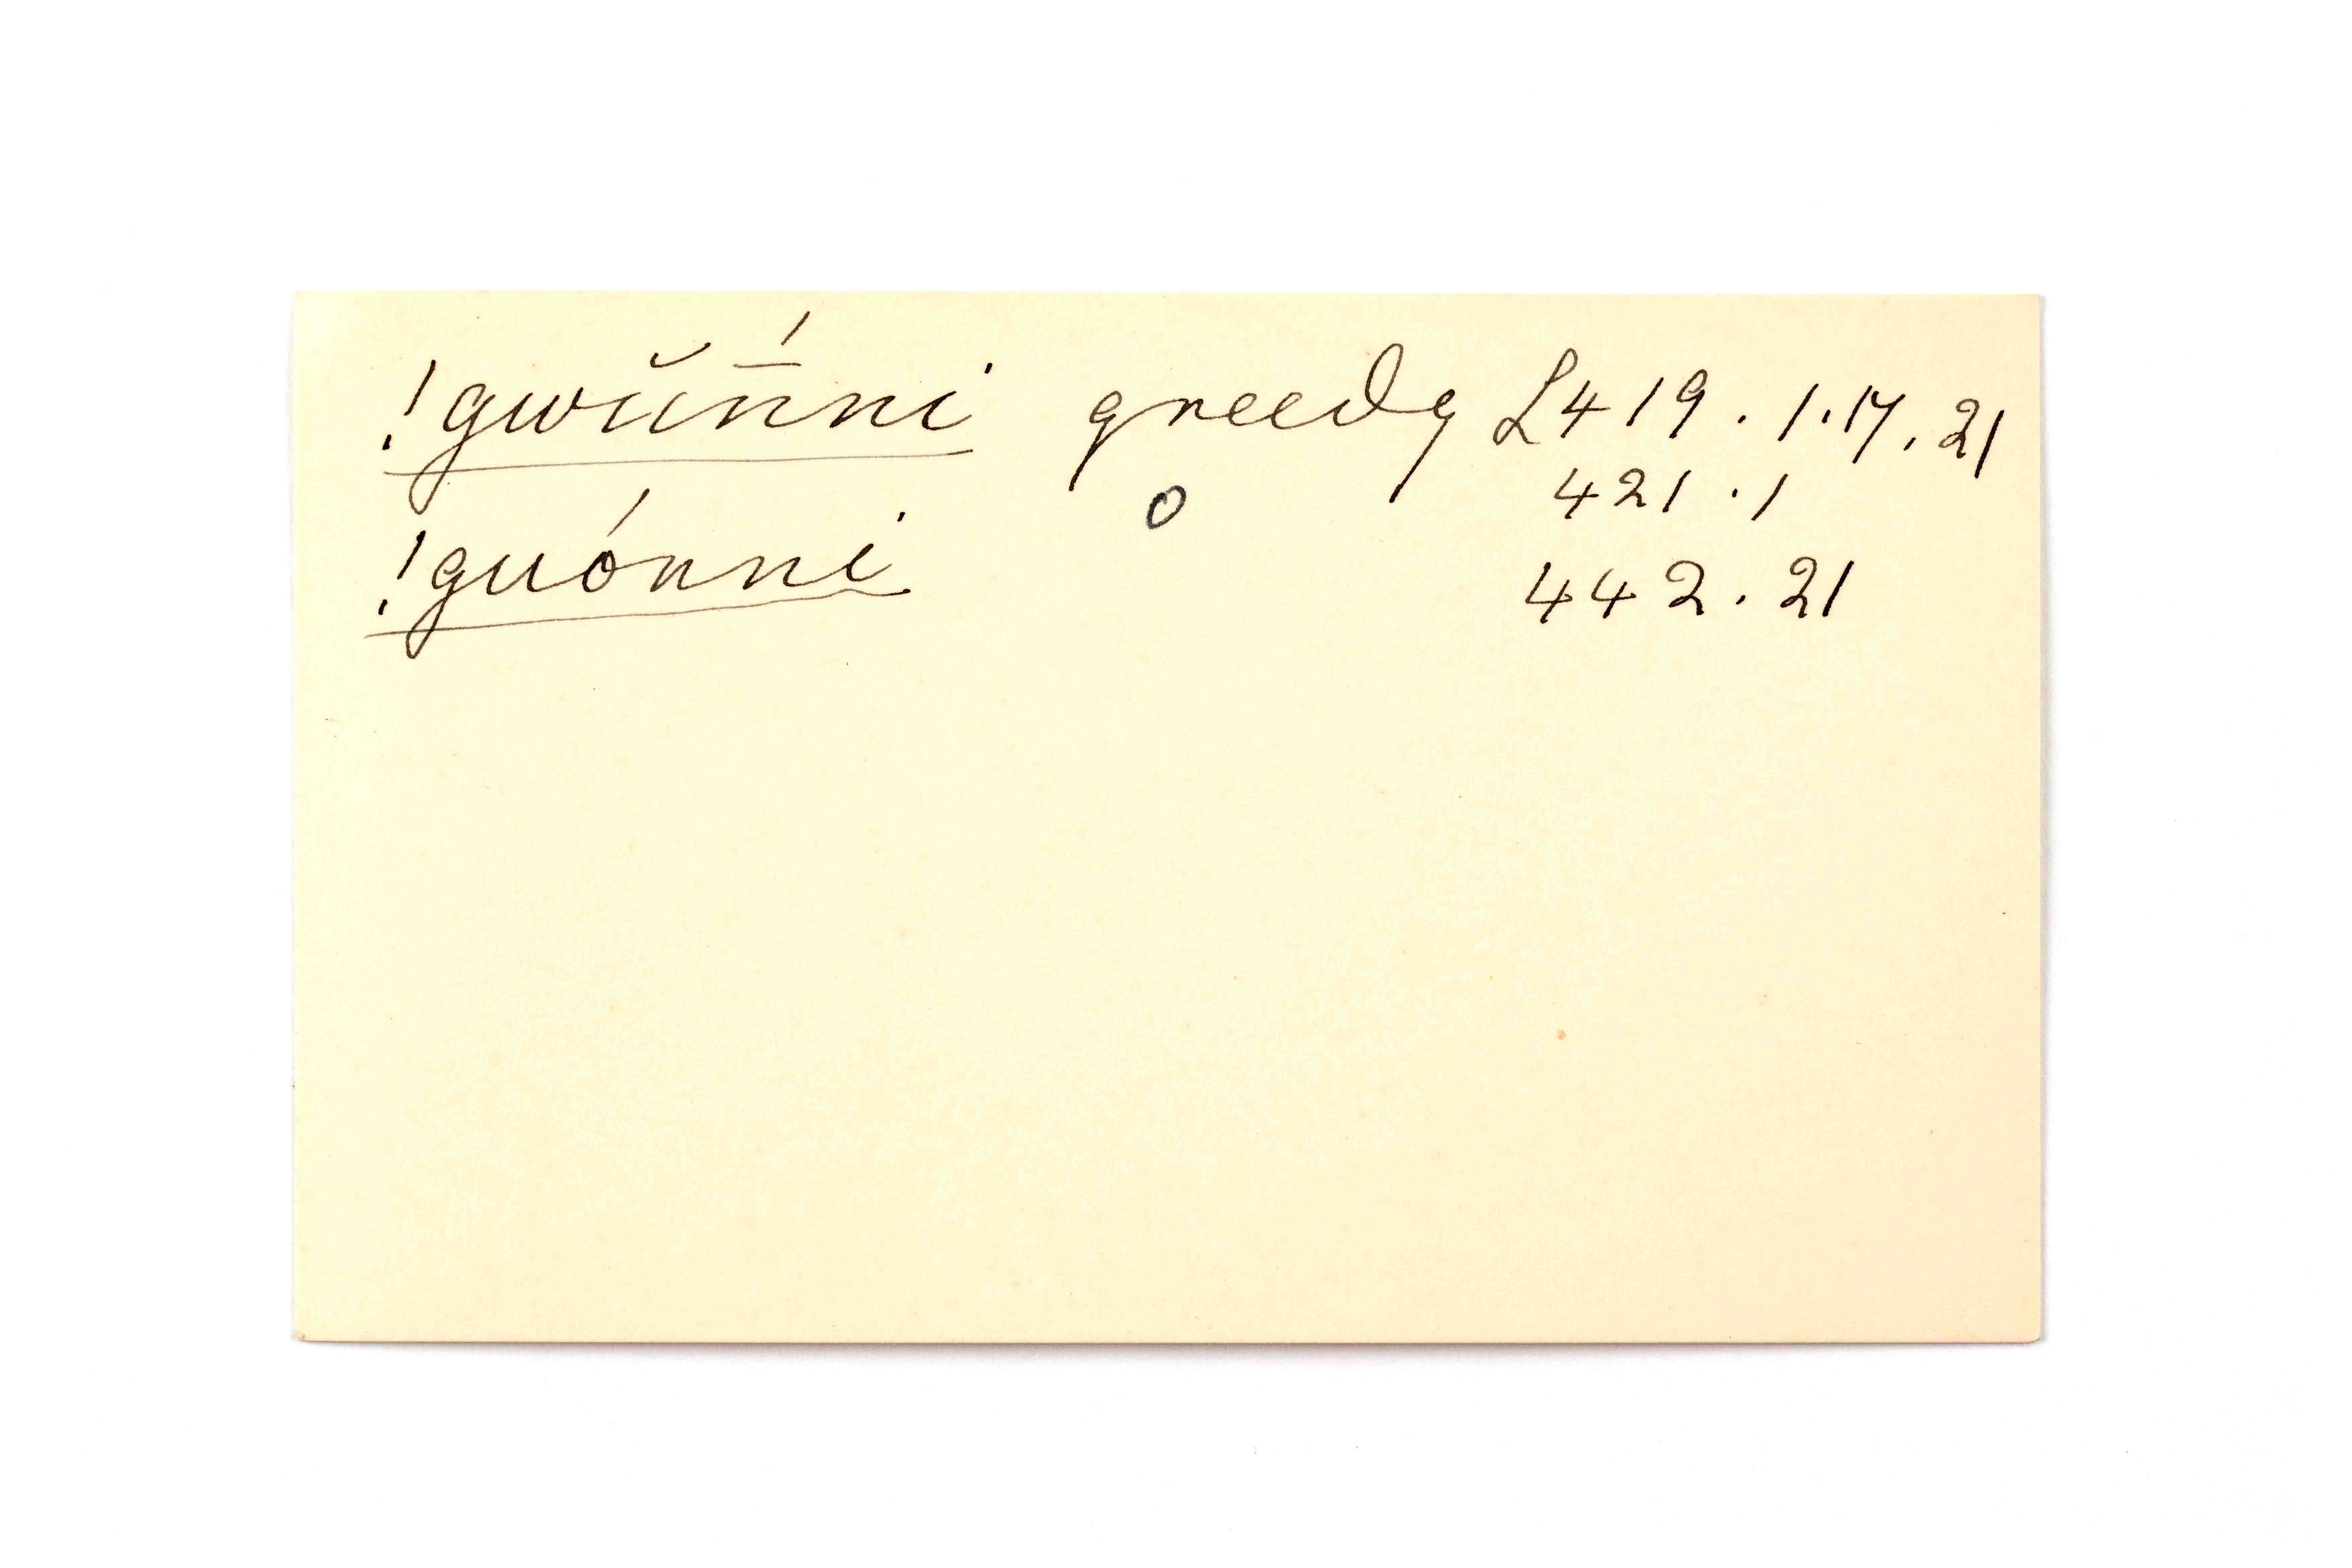 !gwŭn̄́ni greedy L419 . 1.17 . 21
o 421 . 1
!guónni 442 . 21